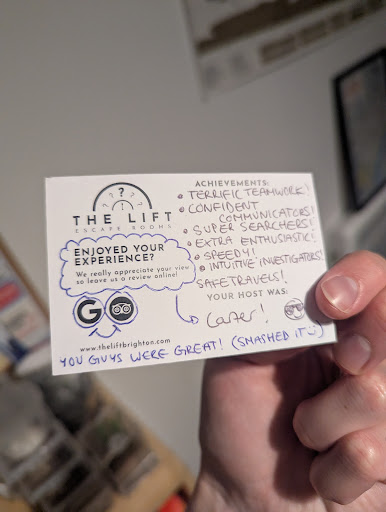 ?
THE LIFT
ESCAPE ROOMS
ENJOYED YOUR
EXPERIENCE?
We really appreciate your view
so leave us a review online!
G
www.theliftbrighton.com
ACHIEVEMENTS:
• TERRIFIC TEAMWORK!
• CONFIDENT
COMMUNICATORS!
• SUPER SEARCHERS!
• EXTRA ENTHUSIASTIC!
• SPEEDY!
• INTUITIVE INVESTIGATORS!
SAFE TRAVELS!
YOUR HOST WAS:
Carter!
YOU GUYS WERE GREAT! (SMASHED IT :)